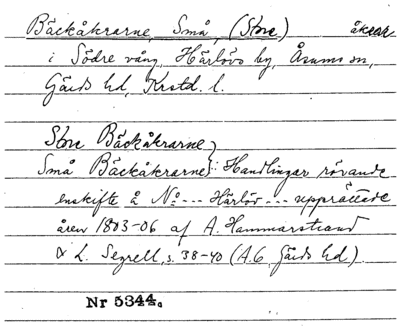 Bäckåkrarne, Små, (Stora) åkrar
i Södre vång, Härlövs by, Åsums sn,
Gärds hd, Krstd. l.
Stora Bäckåkrarne }
Små Bäckåkrarne } : Handlingar rörande
enskifte å No --- Härlöv --- upprättade
åren 1803-06 af A. Hammarstrand
& L. Segrell, s. 38-40 (A.6 Gärds hd).
Nr 5344.